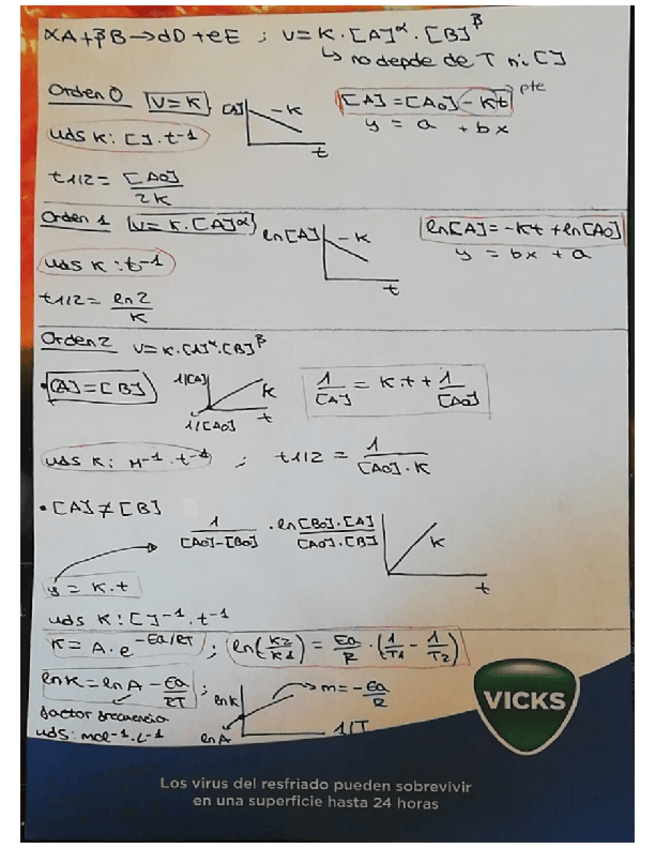 αA+βB→dD+eE ; v=K·[A]^α·[B]^β
↳ no depde de T ni [ ]
Orden 0 v=K [A] -K t [A]=[A0]-Kt → pte
y = a + bx
uds K: [ ]·t^-1
t1/2 = [A0]/2K
Orden 1 v=K·[A]^α ln[A] -K t ln[A]=-Kt+ln[A0]
y = bx + a
uds K: t^-1
t1/2 = ln2/K
Orden 2 v=K·[A]^α·[B]^β
·[A]=[B] 1/[A] K t 1/[A0] 1/[A] = Kt + 1/[A0]
uds K: M^-1·t^-1 ; t1/2 = 1/[A0]·K
·[A]≠[B]
1/[A0]-[B0] · ln [B0]·[A]/[A0]·[B] K t
y = K·t
uds K: [ ]^-1·t^-1
K=A·e^-Ea/RT ; ln(K2/K1) = Ea/R · (1/T1 - 1/T2)
lnK=lnA-Ea/RT ; lnK lnA → m=-Ea/R 1/T
factor frecuencia
uds: mol^-1·L^-1
VICKS
Los virus del resfriado pueden sobrevivir
en una superficie hasta 24 horas